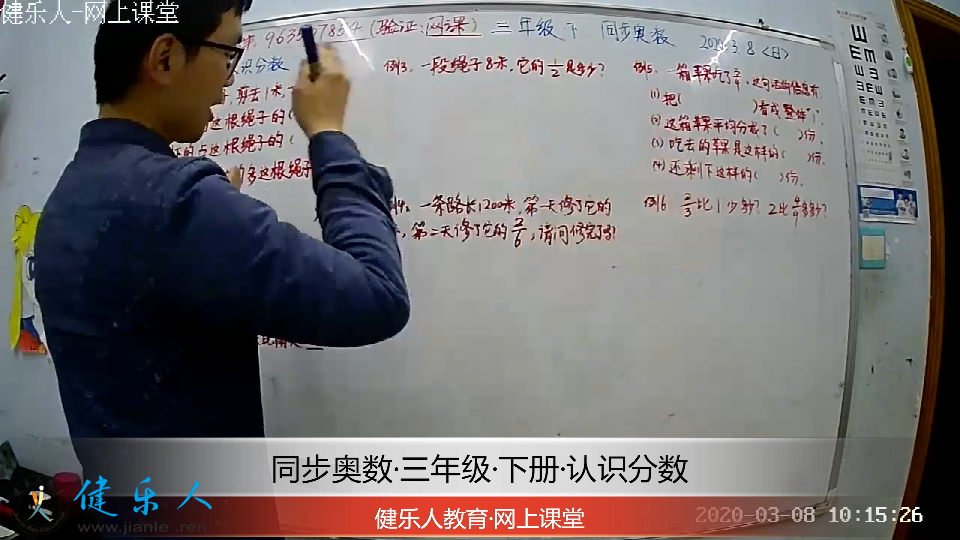 健乐人-网上课堂
(验证:网课) 三年级 下 同步奥数 2020.3.8<日>
识分数
剪去1米
这根绳子的(
的占这根绳子的(
多这根绳子
例3. 一段绳子8米,它的1/2是多少?
一条路长1200米,第一天修了它的
第二天修了它的2/6,请问修完了吗?
例5. 一箱苹果吃了3/4,这句话的信息有
(1) 把( )看成整体"1".
(2) 这箱苹果平均分成了( )份.
(3) 吃去的苹果是这样的( )份.
(4) 还剩下这样的( )份.
例6. 2/3比1少多少?
同步奥数·三年级·下册·认识分数
健乐人
www.jianle.ren
健乐人教育·网上课堂
2020-03-08 10:15:26